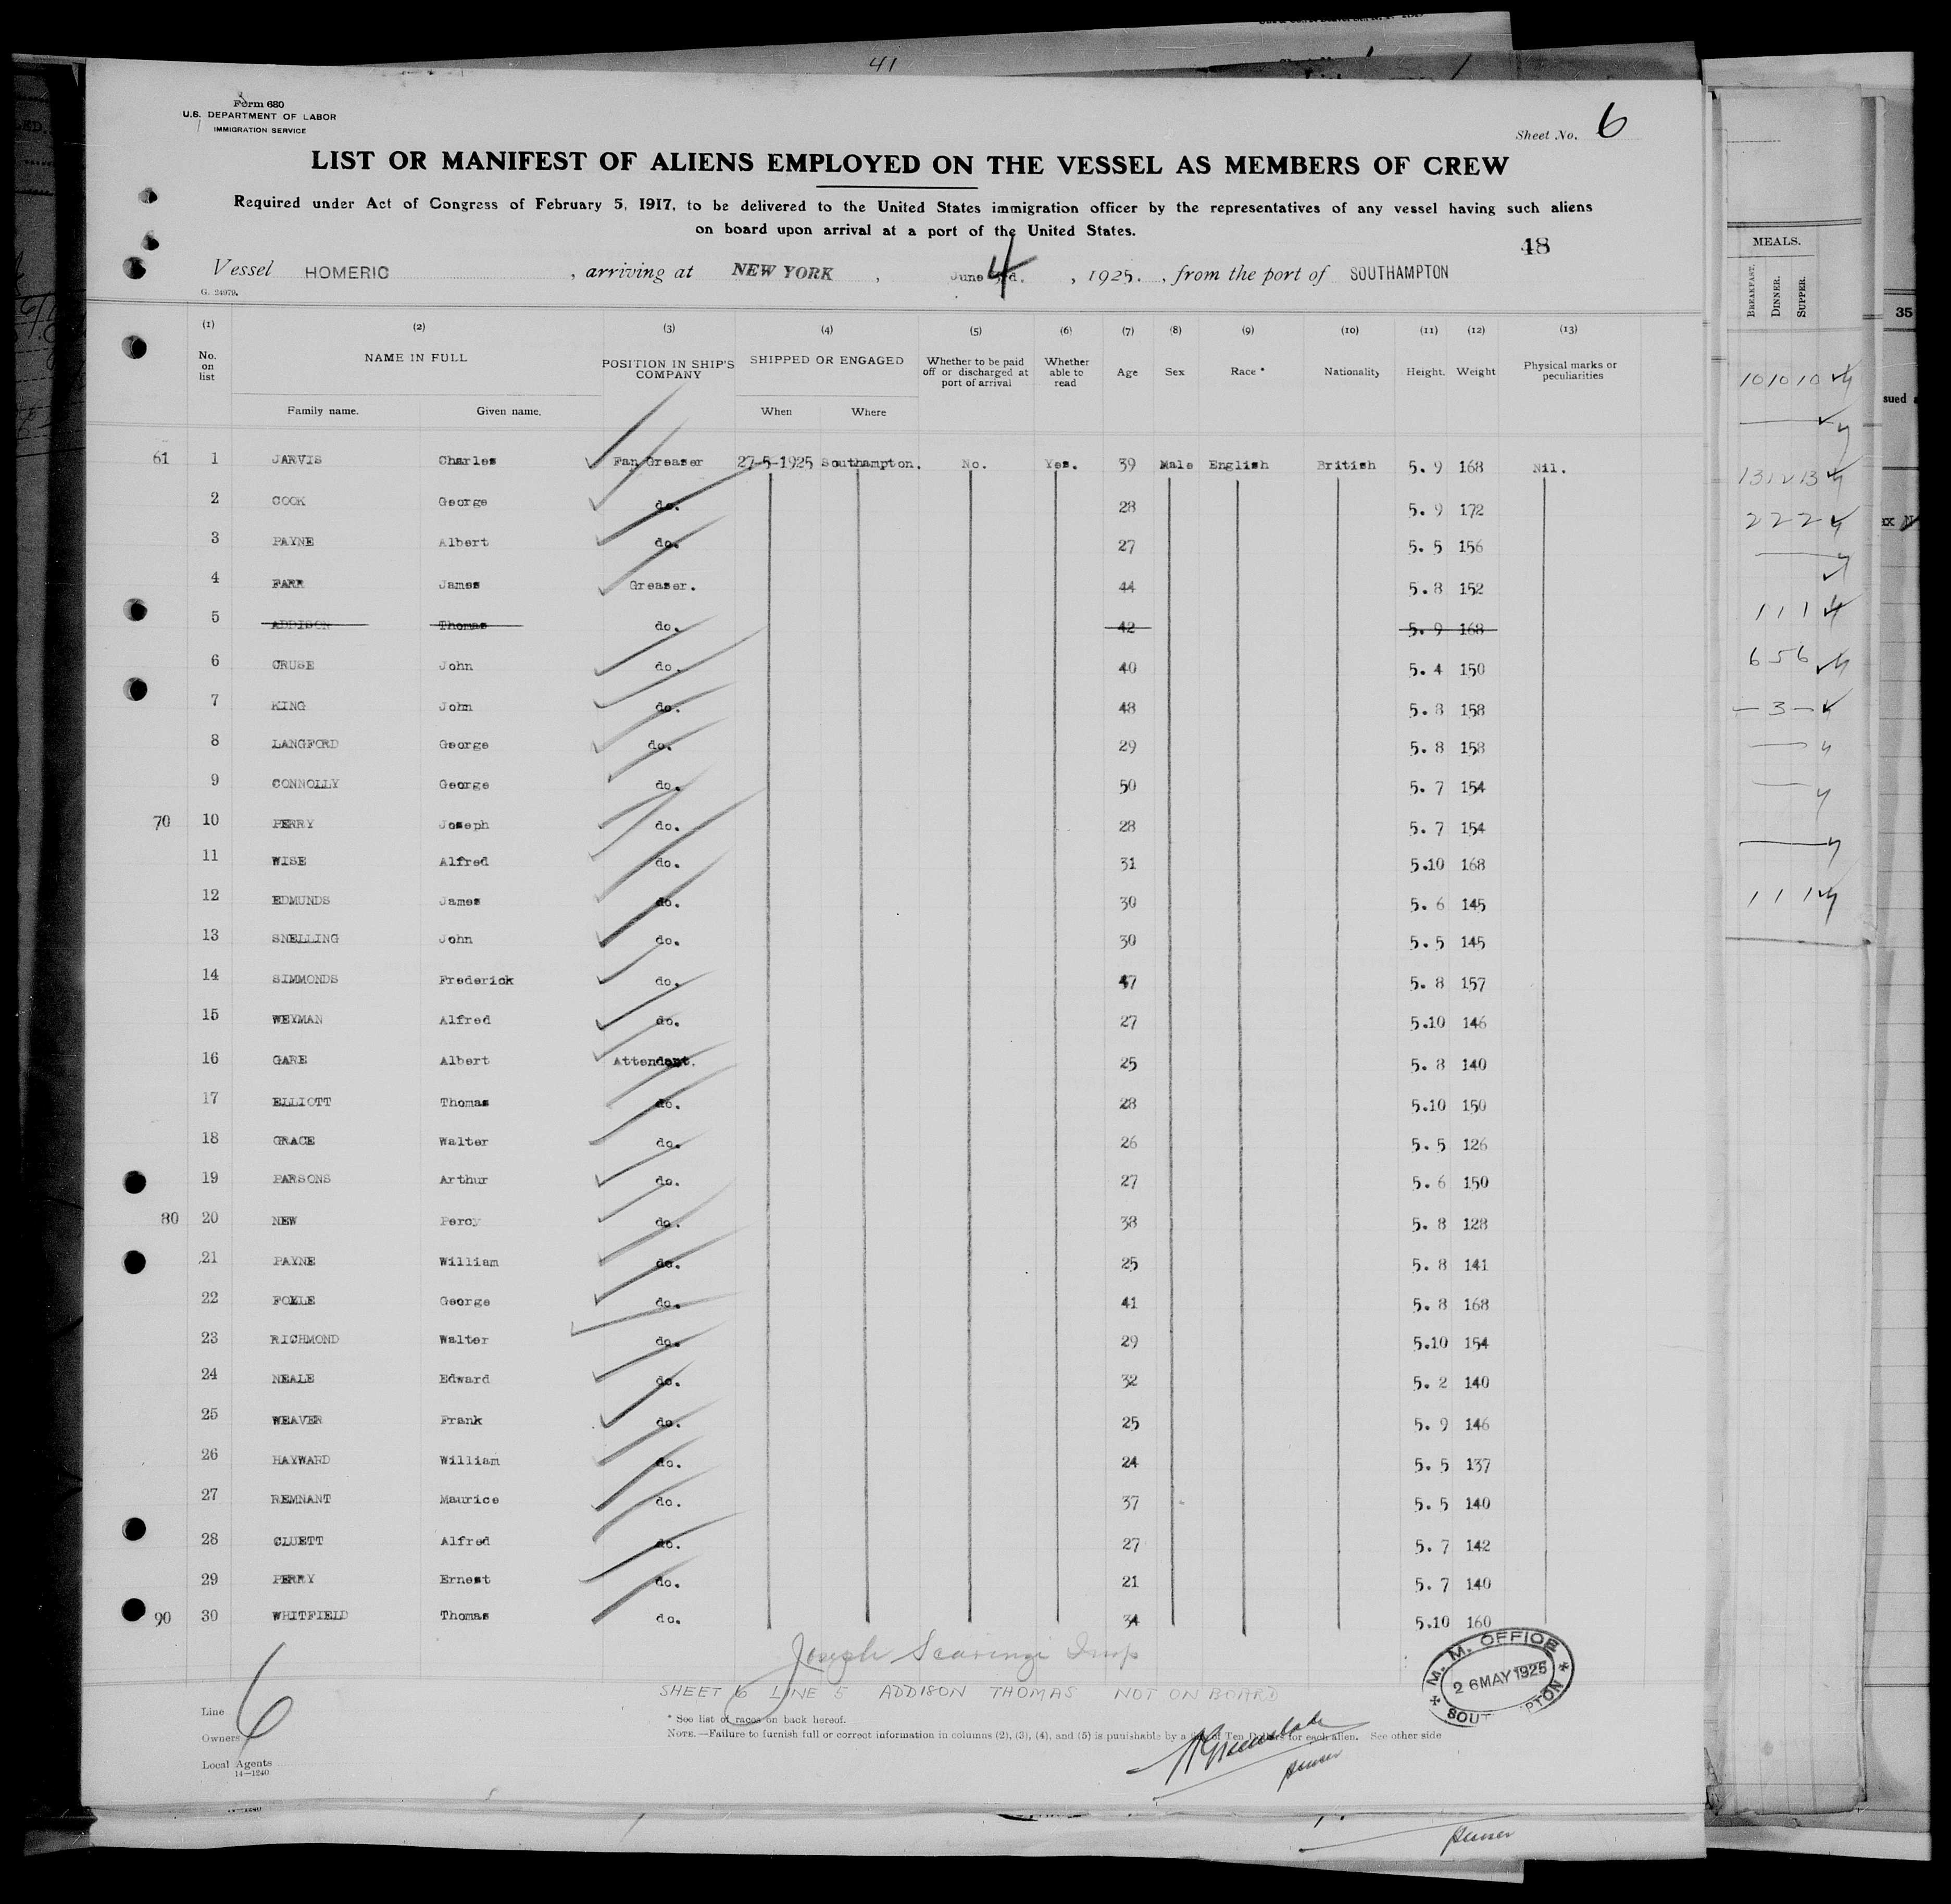 41
Form 680
U.S. DEPARTMENT OF LABOR
IMMIGRATION SERVICE
Sheet No. 6
LIST OR MANIFEST OF ALIENS EMPLOYED ON THE VESSEL AS MEMBERS OF CREW
Required under Act of Congress of February 5, 1917, to be delivered to the United States immigration officer by the representatives of any vessel having such aliens
on board upon arrival at a port of the United States.
48
Vessel HOMERIC , arriving at NEW YORK , June 4 , 1925. , from the port of SOUTHAMPTON
G. 24979.
(1) (2) (3) (4) (5) (6) (7) (8) (9) (10) (11) (12) (13)
No. on list NAME IN FULL POSITION IN SHIP'S COMPANY SHIPPED OR ENGAGED Whether to be paid off or discharged at port of arrival Whether able to read Age Sex Race * Nationality Height. Weight Physical marks or peculiarities
Family name. Given name. When Where
61 1 JARVIS Charles Fan Greaser 27-5-1925 Southampton. No. Yes. 39 Male English British 5. 9 168 Nil.
2 COOK George do. 28 5. 9 172
3 PAYNE Albert do. 27 5. 5 156
4 FARR James Greaser. 44 5. 8 152
5 ADDISON Thomas do. 42 5. 9 168
6 CRUSE John do. 40 5. 4 150
7 KING John do. 48 5. 8 158
8 LANGFORD George do. 29 5. 8 158
9 CONNOLLY George do. 50 5. 7 154
70 10 PERRY Joseph do. 28 5. 7 154
11 WISE Alfred do. 31 5.10 168
12 EDMUNDS James do. 30 5. 6 145
13 SNELLING John do. 30 5. 5 145
14 SIMMONDS Frederick do. 47 5. 8 157
15 WEYMAN Alfred do. 27 5.10 146
16 GARE Albert Attendant. 25 5. 8 140
17 ELLIOTT Thomas do. 28 5.10 150
18 GRACE Walter do. 26 5. 5 126
19 PARSONS Arthur do. 27 5. 6 150
80 20 NEW Percy do. 38 5. 8 128
21 PAYNE William do. 25 5. 8 141
22 George do. 41 5. 8 168
23 RICHMOND Walter do. 29 5.10 154
24 NEALE Edward do. 32 5. 2 140
25 WEAVER Frank do. 25 5. 9 146
26 HAYWARD William do. 24 5. 5 137
27 REMNANT Maurice do. 37 5. 5 140
28 CLUETT Alfred do. 27 5. 7 142
29 PERRY Ernest do. 21 5. 7 140
90 30 WHITFIELD Thomas do. 34 5.10 160
Joseph Insp
SHEET 6 LINE 5 ADDISON THOMAS NOT ON BOARD
M. M. OFFICE
26 MAY 1925
Line
Owners
Local Agents
14—1240
6
* See list of races on back hereof.
NOTE.—Failure to furnish full or correct information in columns (2), (3), (4), and (5) is punishable by a fine of Ten Dollars for each alien. See other side
Purser
Purser
MEALS.
BREAKFAST. DINNER. SUPPER.
10 10 10
13 12 13
2 2 2
1 1 1
6 5 6
— 3 —
1 1 1
35